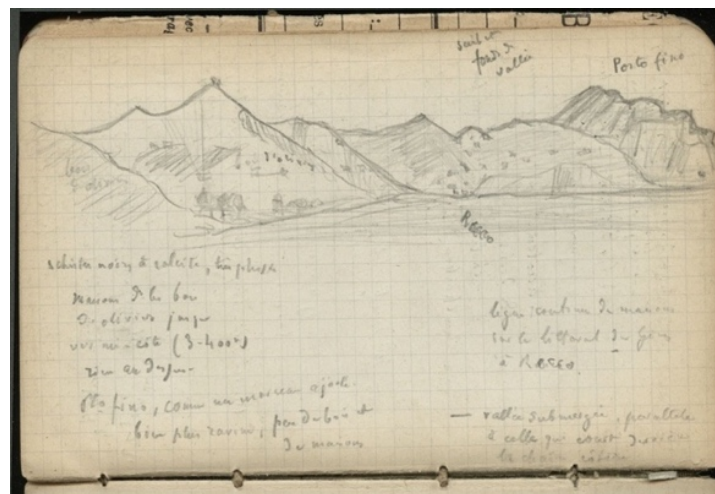 fonds de
vallée
Porto fino
d'oliviers
bois
d'oliviers
Recco
schistes noirs à calcite, très plissés
maisons de les bas
d'oliviers jusque
vers mi côte (3-400m)
rien au dessus.
Pto fino, comme un morceau ajouté.
bien plus raviné, peu de bois et
de maisons
ligne continue de maisons
sur le littoral de Gênes
à Recco.
— vallée submergée, parallèle
à celle qui court derrière
la chaîne côtière